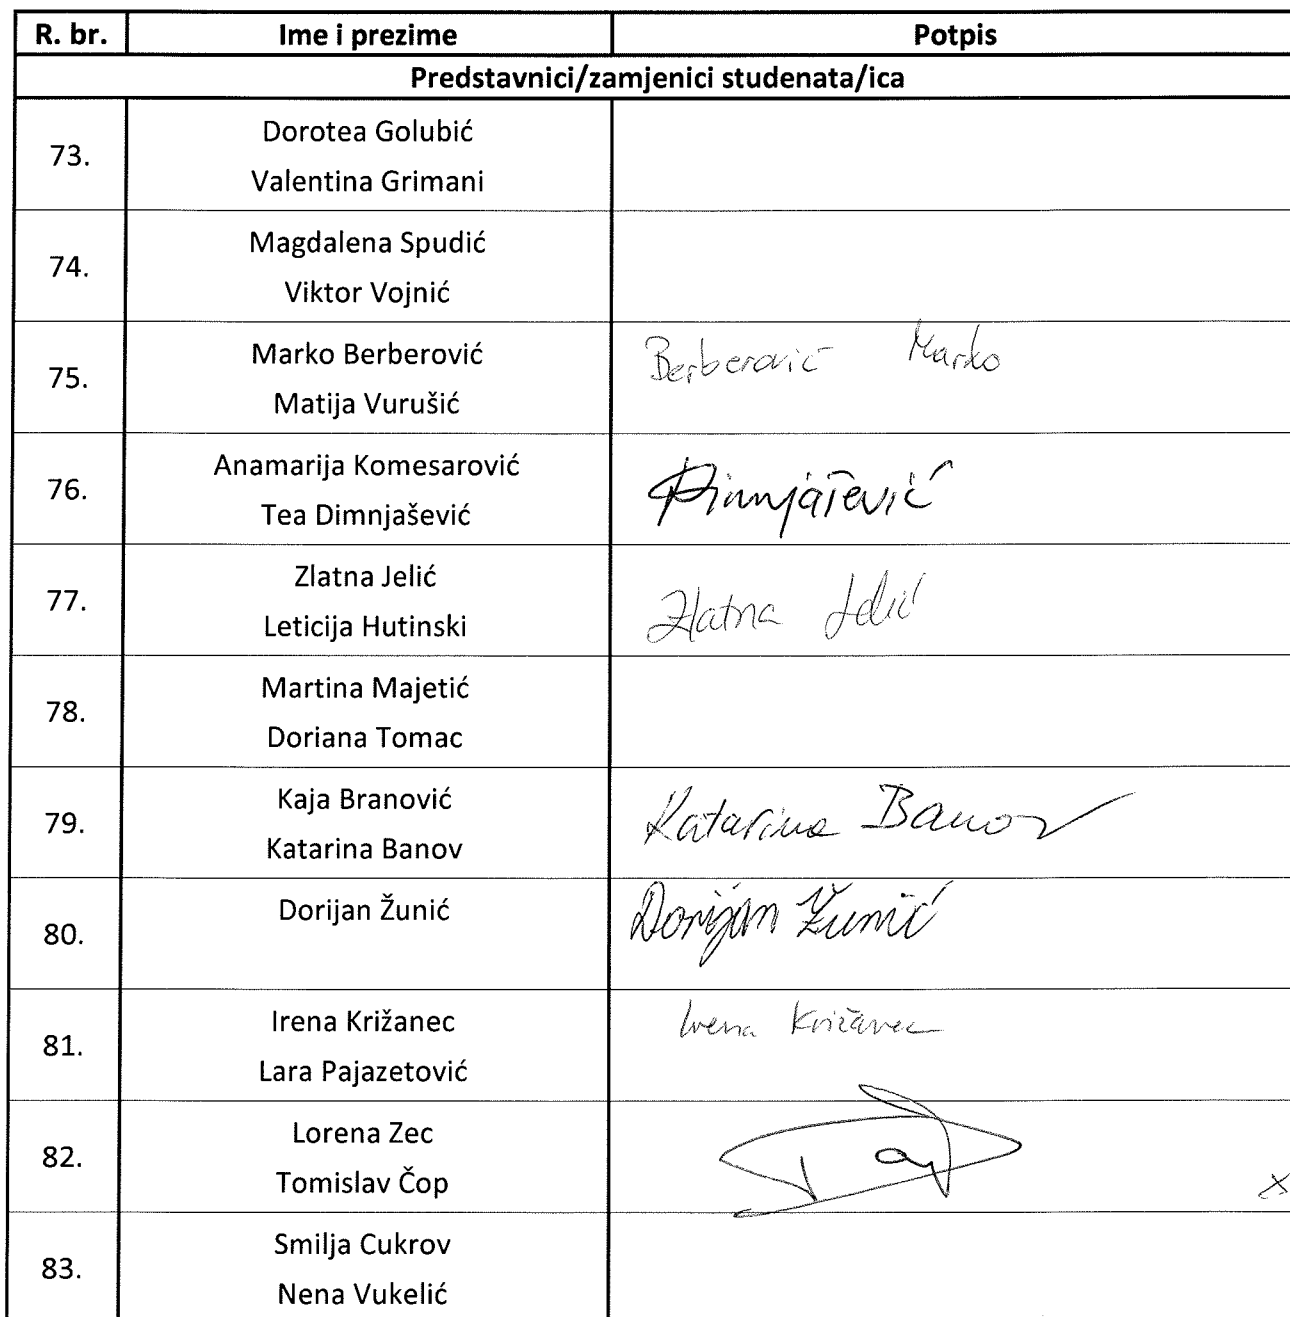 R. br. Ime i prezime Potpis
Predstavnici/zamjenici studenata/ica
73. Dorotea Golubić
Valentina Grimani
74. Magdalena Spudić
Viktor Vojnić
75. Marko Berberović Berberović Marko
Matija Vurušić
76. Anamarija Komesarović Dimnjašević
Tea Dimnjašević
77. Zlatna Jelić Zlatna Jelić
Leticija Hutinski
78. Martina Majetić
Doriana Tomac
79. Kaja Branović Katarina Banov
Katarina Banov
80. Dorijan Žunić Dorijan Žunić
81. Irena Križanec Irena Križanec
Lara Pajazetović
82. Lorena Zec
Tomislav Čop X
83. Smilja Cukrov
Nena Vukelić